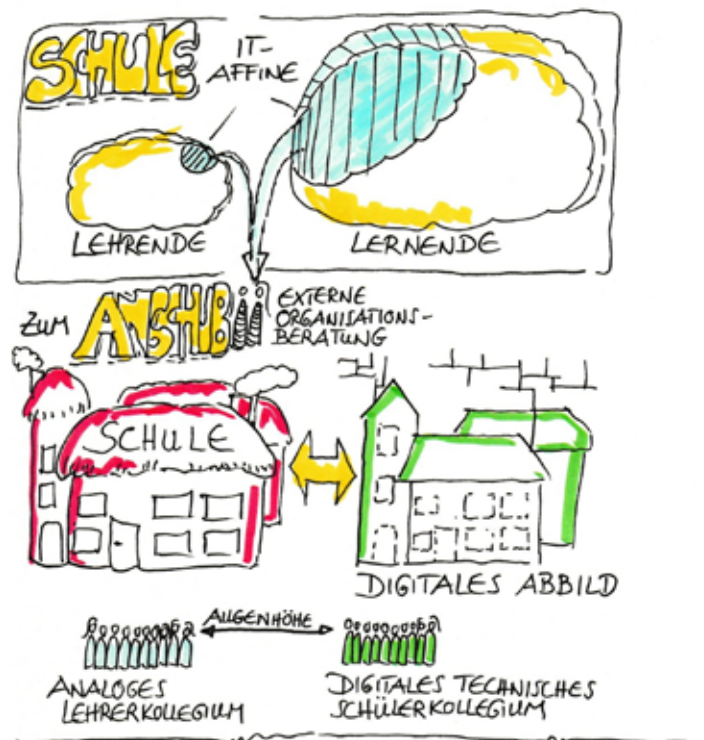 SCHULE
IT-
AFFINE
LEHRENDE
LERNENDE
ZUM ANSCHUB
EXTERNE
ORGANISATIONS-
BERATUNG
SCHULE
DIGITALES ABBILD
AUGENHÖHE
ANALOGES
LEHRERKOLLEGIUM
DIGITALES TECHNISCHES
SCHÜLERKOLLEGIUM